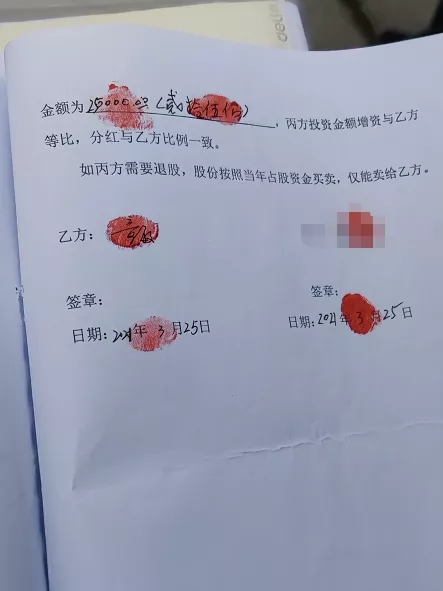 金额为 (贰拾伍 ) ，丙方投资金额增资与乙方
等比，分红与乙方比例一致。
如丙方需要退股，股份按照当年占股资金买卖，仅能卖给乙方。
乙方：
签章：
签章：
日期：2021年 3 月25日
日期：2021年 3 月25日